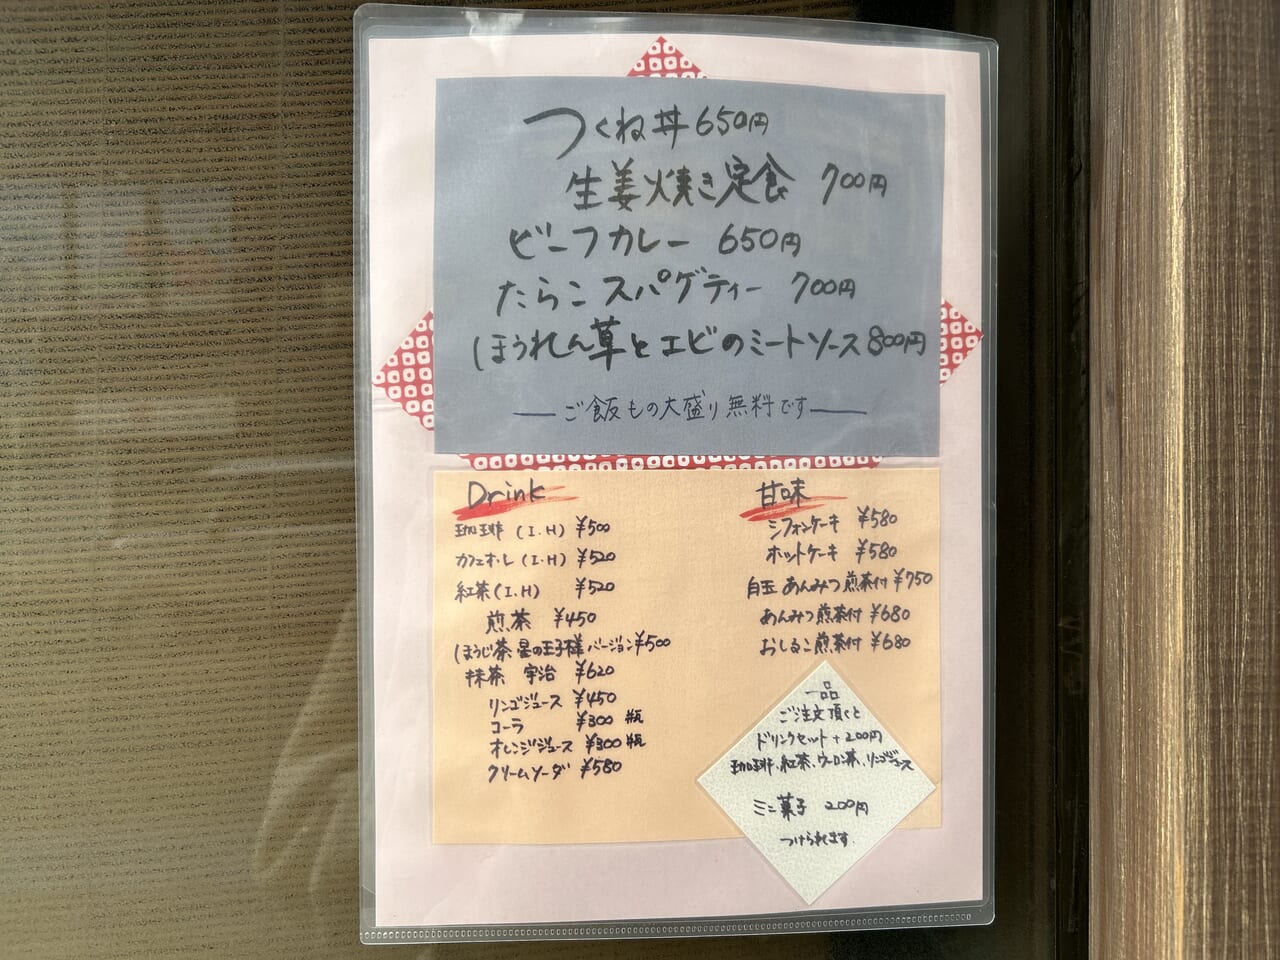 つくね丼 650円
生姜焼き定食 700円
ビーフカレー 650円
たらこスパゲティー 700円
ほうれん草とエビのミートソース 800円
ご飯もの大盛り無料です
Drink
珈琲 (I.H) ¥500
カフェオーレ (I.H) ¥520
紅茶 (I.H) ¥520
煎茶 ¥450
ほうじ茶 星の王子様バージョン ¥500
抹茶 宇治 ¥620
リンゴジュース ¥450
コーラ ¥300 瓶
オレンジジュース ¥300 瓶
クリームソーダ ¥580
甘味
シフォンケーキ ¥580
ホットケーキ ¥580
白玉あんみつ煎茶付 ¥750
あんみつ煎茶付 ¥680
おしるこ煎茶付 ¥680
一品
ご注文頂くと
ドリンクセット+200円
珈琲、紅茶、ウーロン茶、リンゴジュース
ミニ菓子 200円
つけられます